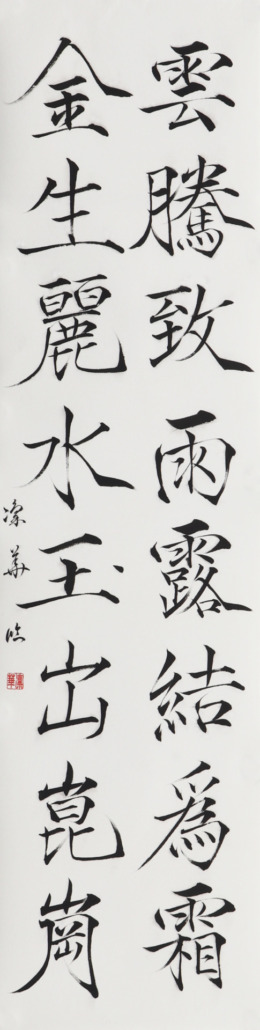 雲騰致雨露結爲霜
金生麗水玉出崑崗